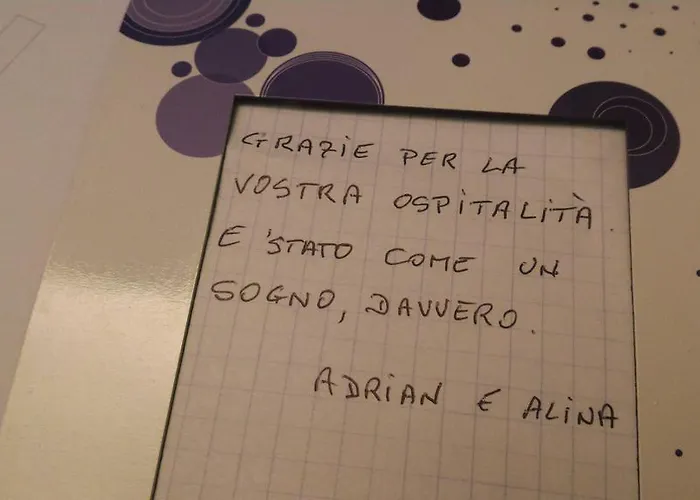 GRAZiE PER LA
VOSTRA OSPiTALiTÀ.
E 'STATO COME UN
SOGNO, DAVVERO.
ADRiAN E ALiNA